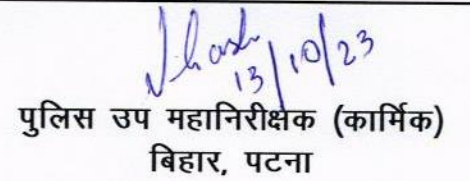 13/10/23
पुलिस उप महानिरीक्षक (कार्मिक)
बिहार, पटना